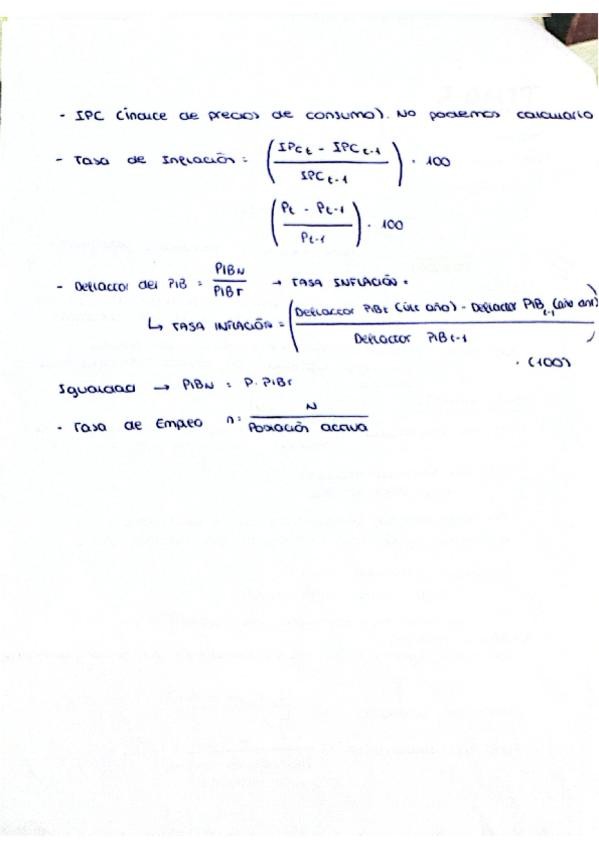 - IPC (índice de precios de consumo). No podemos calcularlo
- Tasa de Inflación = (IPCt - IPCt-1 / IPCt-1) · 100
(Pt - Pt-1 / Pt-1) · 100
- Deflactor del PIB = PIBN / PIBr → TASA INFLACIÓN =
↳ TASA INFLACIÓN = (Deflactor PIBt (últ año) - Deflactor PIBt-1 (año ant) / Deflactor PIBt-1) · (100)
Igualdad → PIBN = P. PIBr
- Tasa de Empleo n = N / Población activa